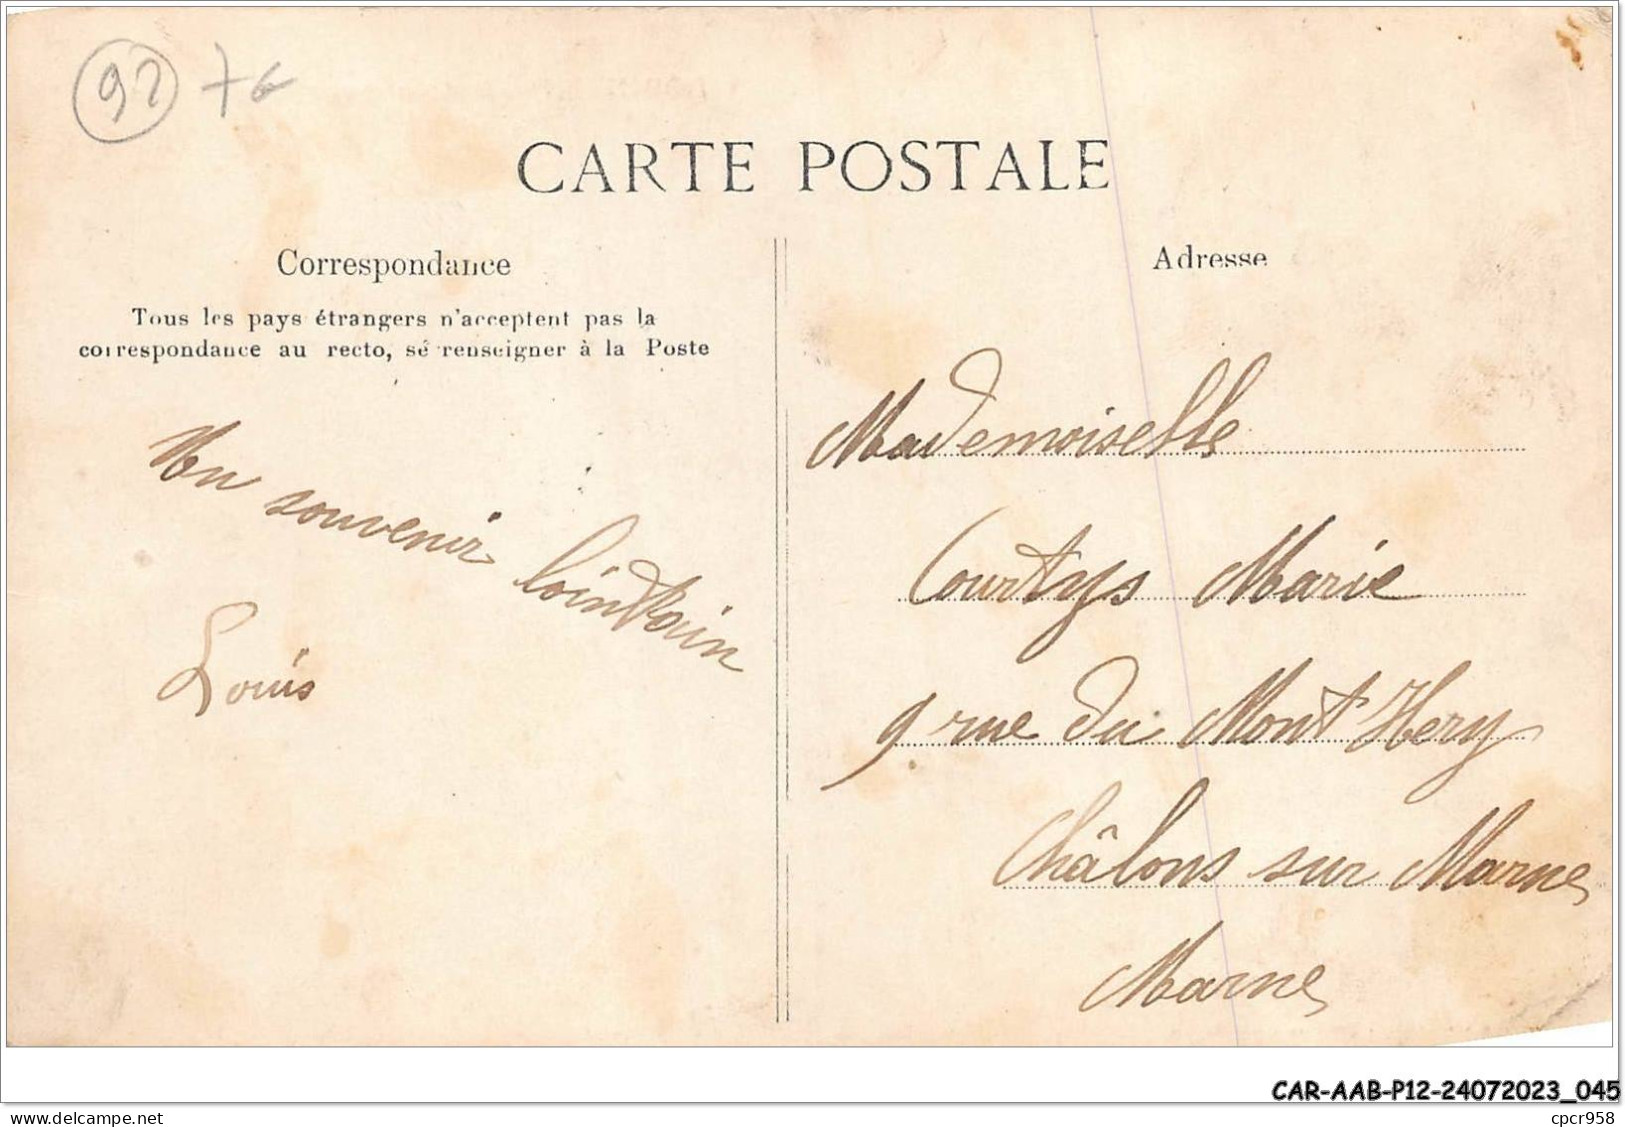 92 76
CARTE POSTALE
Correspondance
Tous les pays étrangers n'acceptent pas la
correspondance au recto, se renseigner à la Poste
Un souvenir lointain
Louis
Adresse
Mademoiselle
Courtys Marie
9 rue du Mont Hery
Châlons sur Marne
Marne
CAR-AAB-P12-24072023_045
www.delcampe.net
cpcr958